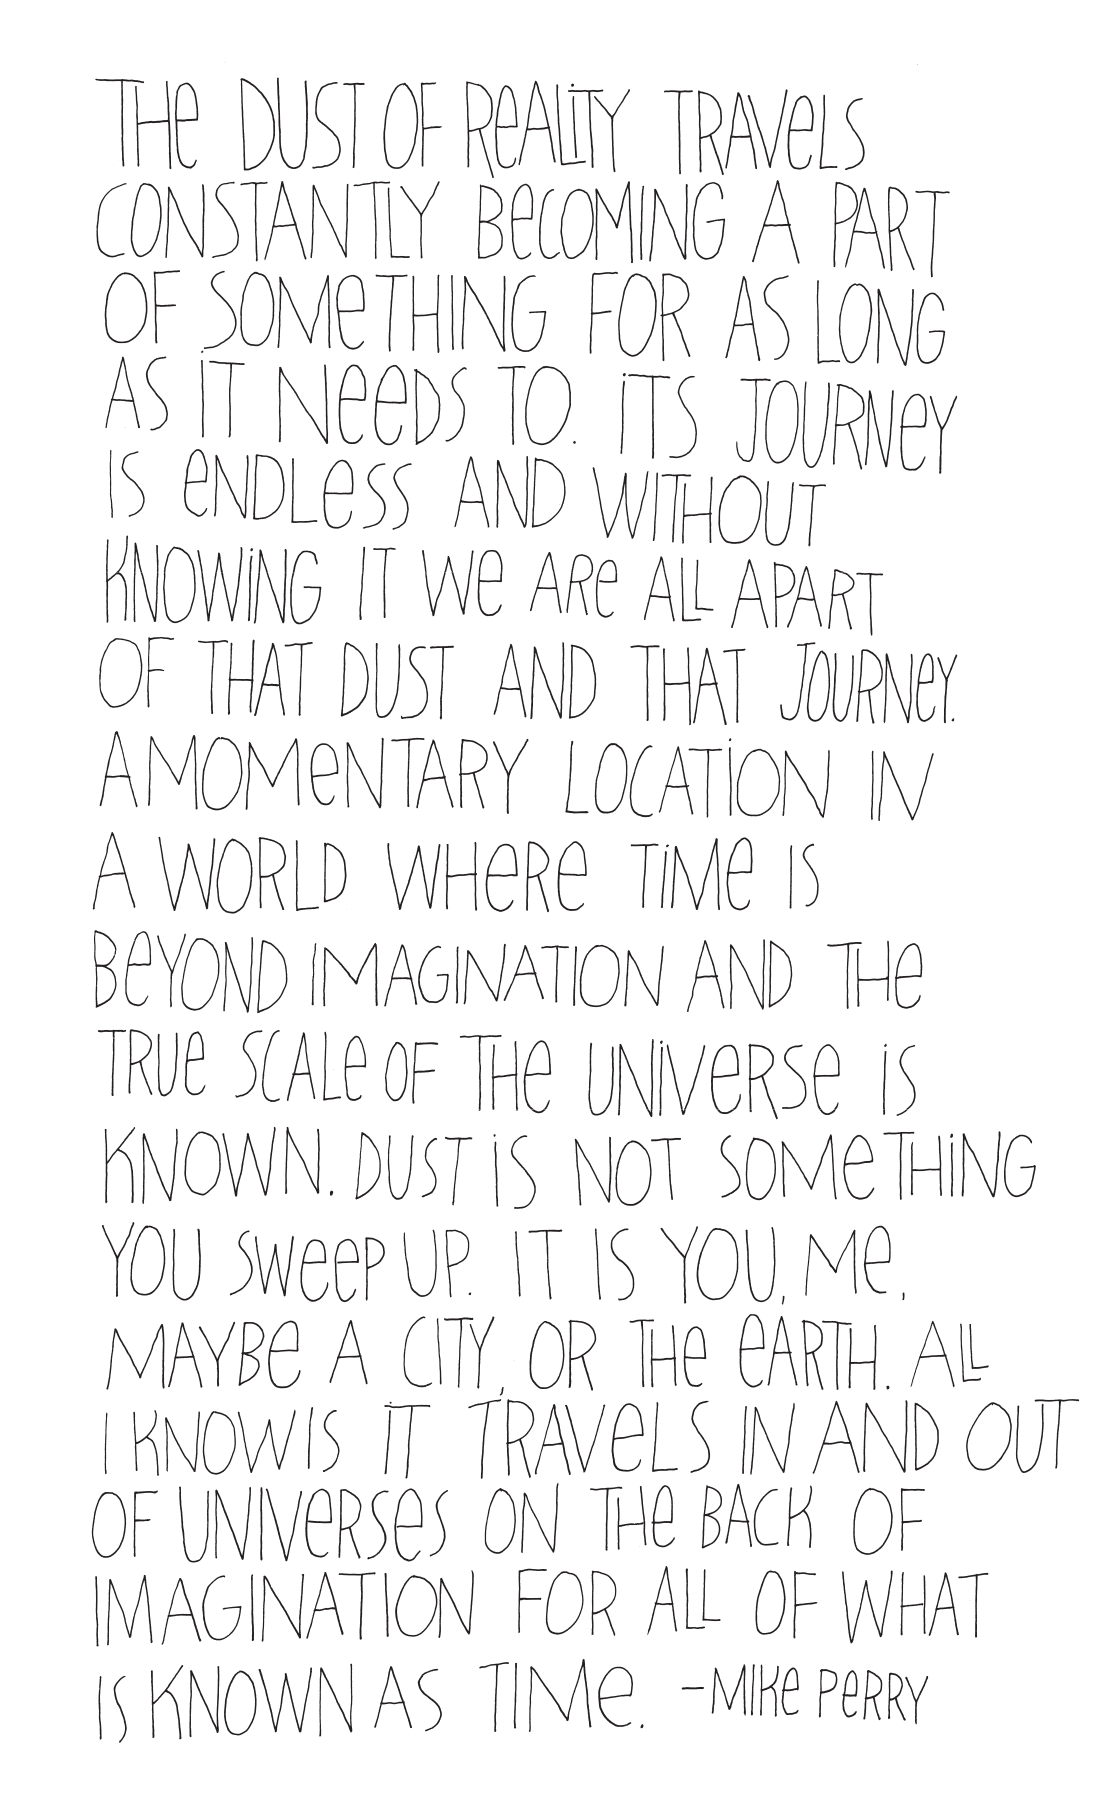 THE DUST OF REALITY TRAVELS
CONSTANTLY BECOMING A PART
OF SOMETHING FOR AS LONG
AS IT NEEDS TO. ITS JOURNEY
IS ENDLESS AND WITHOUT
KNOWING IT WE ARE ALL APART
OF THAT DUST AND THAT JOURNEY.
A MOMENTARY LOCATION IN
A WORLD WHERE TIME IS
BEYOND IMAGINATION AND THE
TRUE SCALE OF THE UNIVERSE IS
KNOWN. DUST IS NOT SOMETHING
YOU SWEEP UP. IT IS YOU, ME,
MAYBE A CITY, OR THE EARTH. ALL
I KNOW IS IT TRAVELS IN AND OUT
OF UNIVERSES ON THE BACK OF
IMAGINATION FOR ALL OF WHAT
IS KNOWN AS TIME. -MIKE PERRY